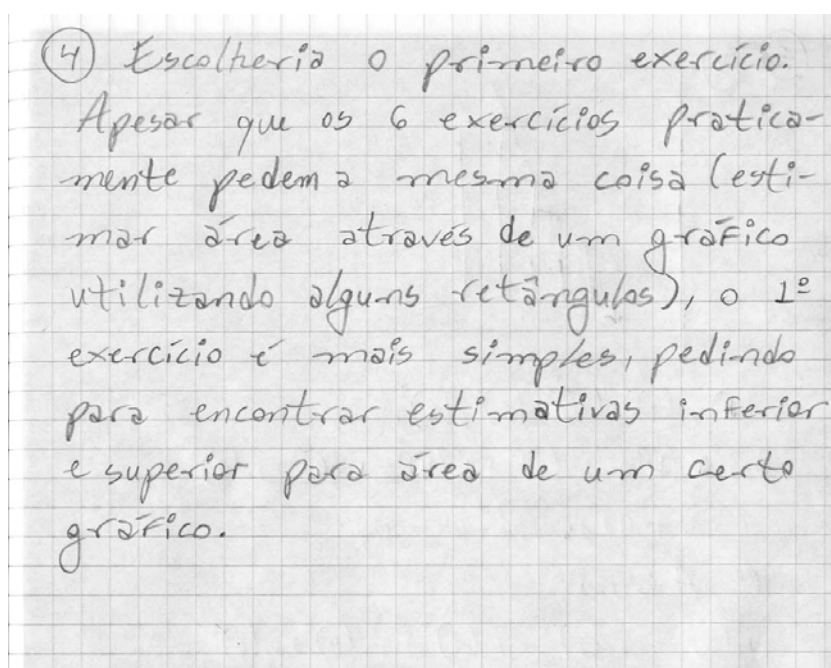 4 Escolheria o primeiro exercício.
Apesar que os 6 exercícios pratica-
mente pedem a mesma coisa (esti-
mar área através de um gráfico
utilizando alguns retângulos), o 1º
exercício é mais simples, pedindo
para encontrar estimativas inferior
e superior para área de um certo
gráfico.